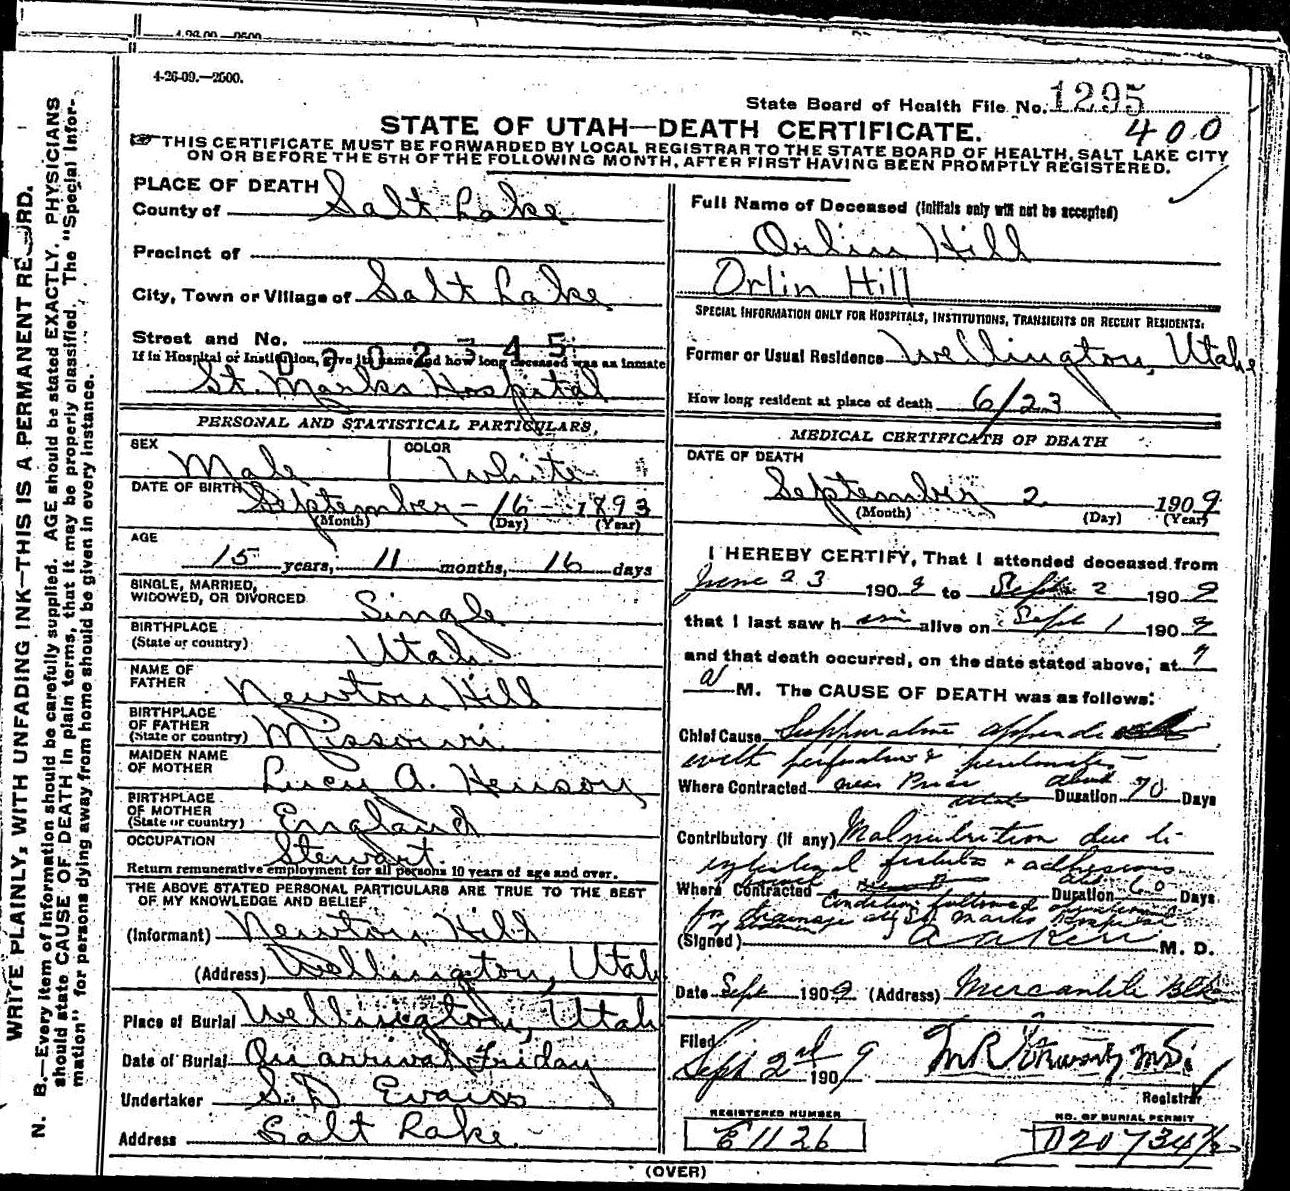 4-26-09.—2500.
4-26-09.—2500.
State Board of Health File No. 1295
STATE OF UTAH—DEATH CERTIFICATE.
400
THIS CERTIFICATE MUST BE FORWARDED BY LOCAL REGISTRAR TO THE STATE BOARD OF HEALTH, SALT LAKE CITY
ON OR BEFORE THE 5TH OF THE FOLLOWING MONTH, AFTER FIRST HAVING BEEN PROMPTLY REGISTERED.
WRITE PLAINLY, WITH UNFADING INK—THIS IS A PERMANENT RECORD.
N. B.—Every item of information should be carefully supplied. AGE should be stated EXACTLY. PHYSICIANS
should state CAUSE OF DEATH in plain terms, that it may be properly classified. The "Special Infor-
mation" for persons dying away from home should be given in every instance.
PLACE OF DEATH
County of Salt Lake
Precinct of
City, Town or Village of Salt Lake
Street and No.
0902345
If in Hospital or Institution, give its name and how long deceased was an inmate
St. Marks Hospital
PERSONAL AND STATISTICAL PARTICULARS.
SEX Male
COLOR White
DATE OF BIRTH September - 16 - 1893
(Month) (Day) (Year)
AGE
15 years, 11 months, 16 days
SINGLE, MARRIED,
WIDOWED, OR DIVORCED Single
BIRTHPLACE
(State or country) Utah
NAME OF
FATHER Newton Hill
BIRTHPLACE
OF FATHER
(State or country) Missouri
MAIDEN NAME
OF MOTHER Lucy A. Henson
BIRTHPLACE
OF MOTHER
(State or country) England
OCCUPATION Stewart
Return remunerative employment for all persons 10 years of age and over.
THE ABOVE STATED PERSONAL PARTICULARS ARE TRUE TO THE BEST
OF MY KNOWLEDGE AND BELIEF
(Informant) Newton Hill
(Address) Wellington, Utah
Place of Burial Wellington, Utah
Date of Burial On arrival Friday
Undertaker S. D Evans
Address Salt Lake
Full Name of Deceased (Initials only will not be accepted)
Orlin Hill
Orlin Hill
SPECIAL INFORMATION ONLY FOR HOSPITALS, INSTITUTIONS, TRANSIENTS OR RECENT RESIDENTS:
Former or Usual Residence Wellington, Utah
How long resident at place of death 6/23
MEDICAL CERTIFICATE OF DEATH
DATE OF DEATH
September 2 1909
(Month) (Day) (Year)
I HEREBY CERTIFY, That I attended deceased from
June 23 1909 to Sept 2 1909
that I last saw him alive on Sept 1 1909
and that death occurred, on the date stated above, at 9
a M. The CAUSE OF DEATH was as follows:
Chief Cause Suppurative
with
Where Contracted near Price Utah Duration about 70 Days
Contributory (If any) Malnutrition due to
fistula & adhesions
Where Contracted Duration abt 60 Days
Condition followed operation
for drainage St. Marks Hospital
(Signed) M. D.
Date Sept 1909 (Address) Mercantile Blk
Filed
Sept 2nd 1909
Registrar
REGISTERED NUMBER
E1126
NO. OF BURIAL PERMIT
D20734½
(OVER)